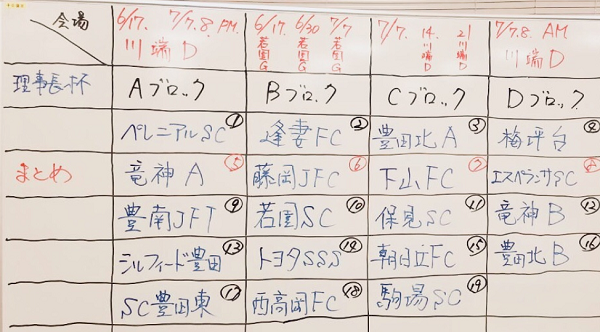 会場 6/17. 7/7.8. P.M. 6/17. 6/30 7/7 7/7. 14. 21 7/7.8 AM
川端D 若園G 若園G 若園G 川端D 川端D 川端D
理事長杯 Aブロック Bブロック Cブロック Dブロック
ペレニアルSC ① 逢妻FC ② 豊田北A ③ 梅坪台 ④
まとめ 竜神A ⑤ 藤岡JFC ⑥ 下山FC ⑦ エスペランサSC ⑧
豊南JFT ⑨ 若園SC ⑩ 保見SC ⑪ 竜神B ⑫
シルフィード豊田 ⑬ トヨタSSS ⑭ 朝日丘FC ⑮ 豊田北B ⑯
SC豊田東 ⑰ 西高岡FC ⑱ 駒場SC ⑲